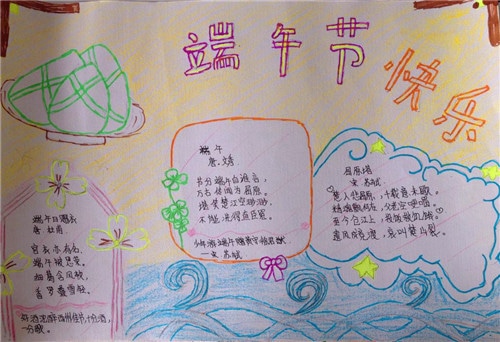 端午节
快乐
端午
唐.文秀
节分端午自谁言,
万古传闻为屈原。
堪笑楚江空渺渺,
不能洗得直臣冤。
少年游端午赠黄守徐君猷
—宋 苏轼
屈原塔
宋 苏轼
楚人悲屈原,千载意未歇。
精魂飘何在,父老空哽咽。
至今仓江上,投饭救饥渴。
遗风成竞渡,哀叫楚山裂。
唐 杜甫
宫衣亦有名,
端午被恩荣。
细葛含风软,
香罗叠雪轻。
佳节,十分酒,
一分歌。